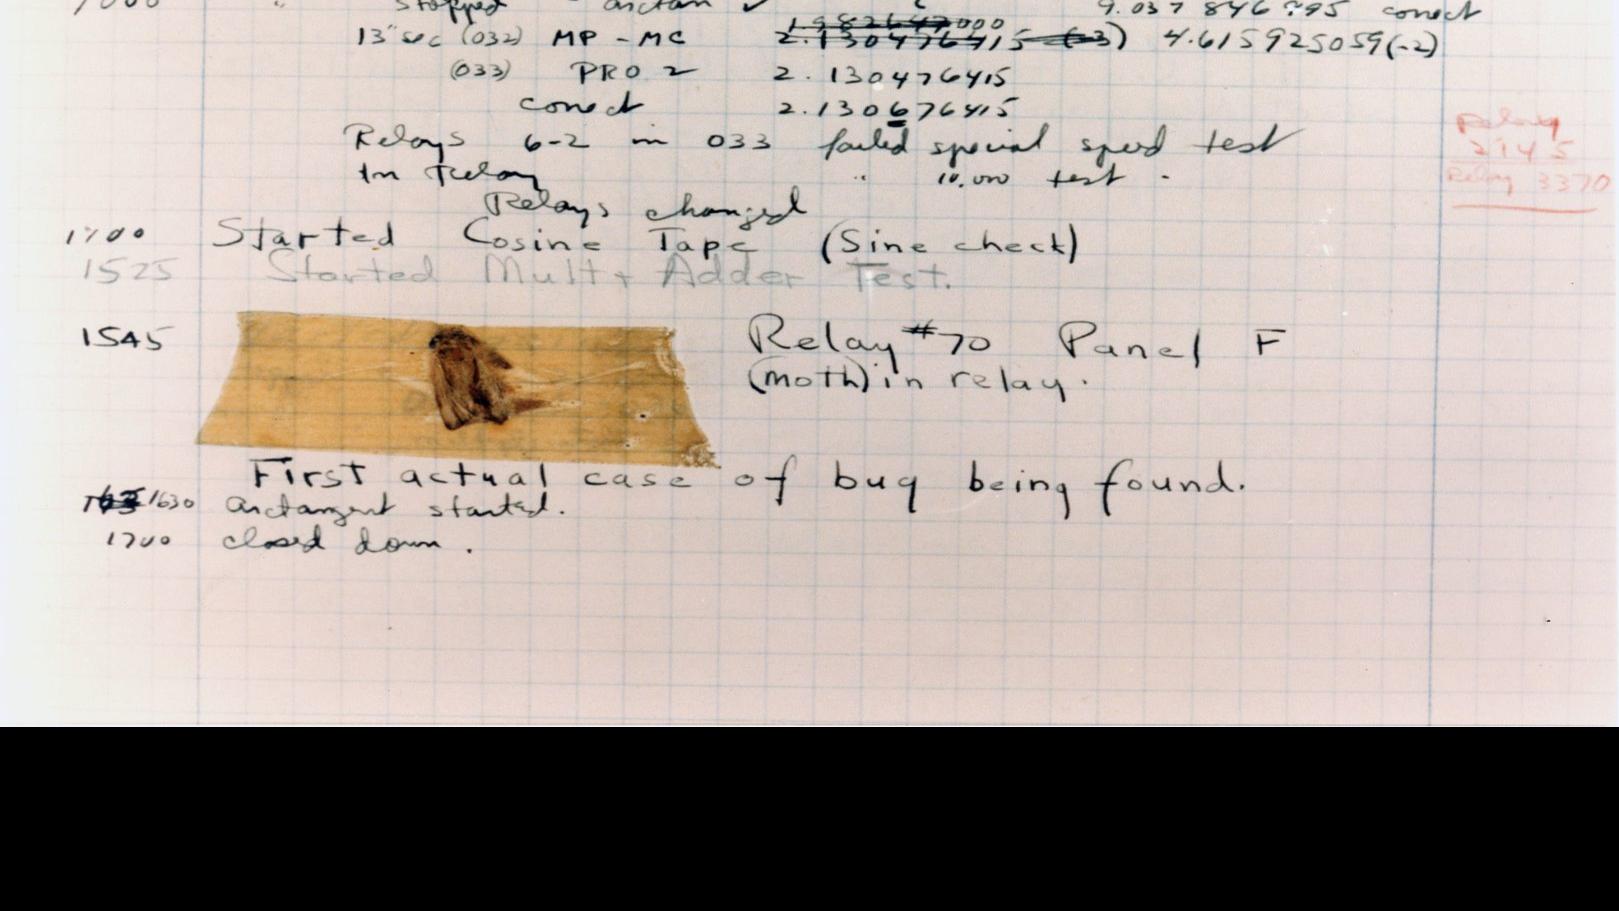 stopped - arctan ✓ correct
13" sec (032) MP - MC 2.130476415 (-3) 4.615925059(-2)
(033) PRO 2 2.130476415
correct 2.130676415
Relays 6-2 in 033 failed special speed test
In Relay " 10.000 test .
Relay
2145
Relay 3370
Relays changed
Started Cosine Tape (Sine check)
1525 Started Mult + Adder Test.
1545 Relay #70 Panel F
(moth) in relay.
First actual case of bug being found.
1630 arctangent started.
1700 closed down .